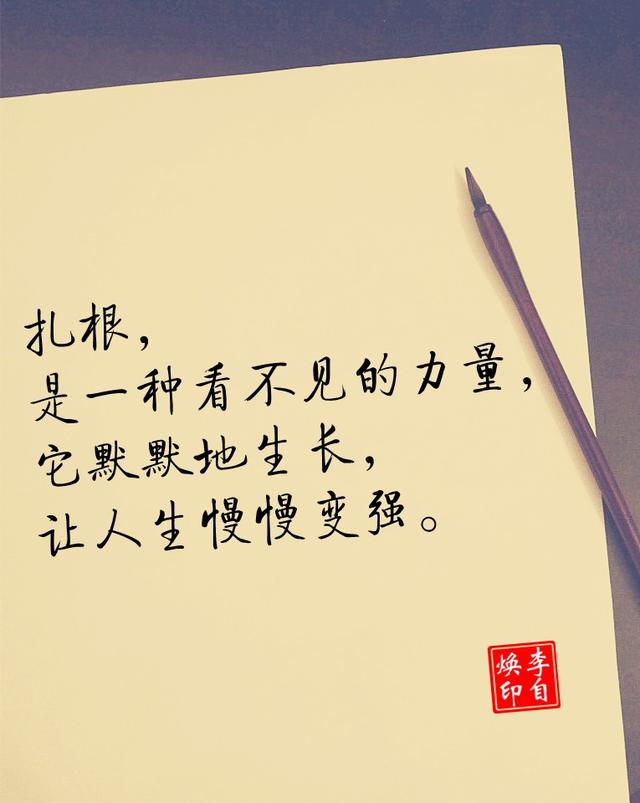 扎根，
是一种看不见的力量，
它默默地生长，
让人生慢慢变强。
李自
焕印